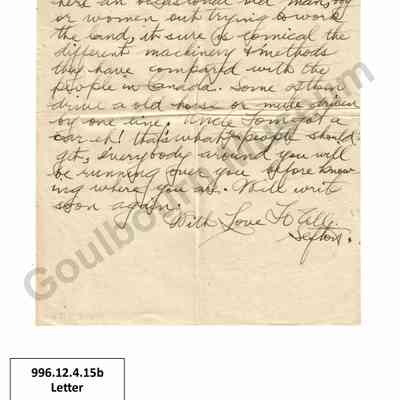 here an occasional old man, boy
or women out trying to work
the land, it sure is comical the
different machinery & methods
they have compared with the
people in Canada. Some of them
drive a old horse or mule driven
by one line. Uncle Tom got a
car eh! that's what people should
get, everybody around you will
be running over you before know
ing where you are. Will write
soon again.
With Love To All.
Sefton.
996.12.4.15b
Letter